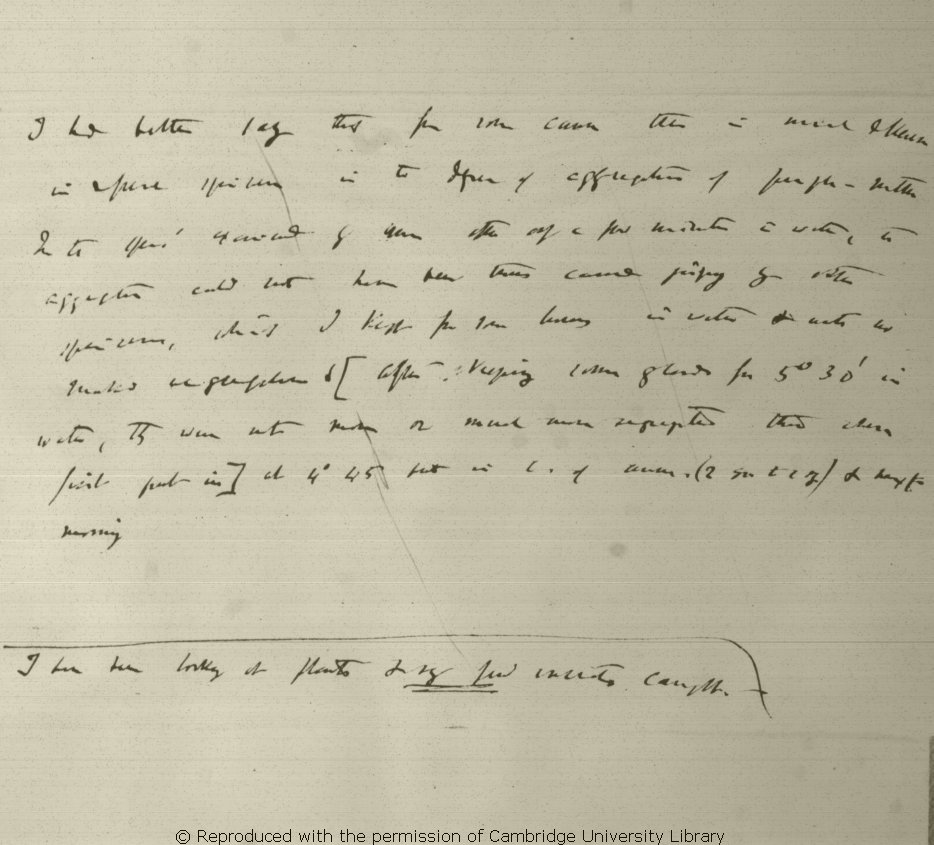 I had better say that from some cause there is much difference
in different specimens in the degree of aggregation of purple matter
In the spec' examined by me after only a few minutes in water, the
aggregation could not have been thus caused
specimens, which I kept for some hours in water & acts no
[after keeping some glands for 5° 30' in
water, they were not more or much more segregated than when
first put in] at 4° 45 put in c. of amm. (2 gr to 1 oz) & next
morning
I have been looking at plants & very few insects caught. —
© Reproduced with the permission of Cambridge University Library